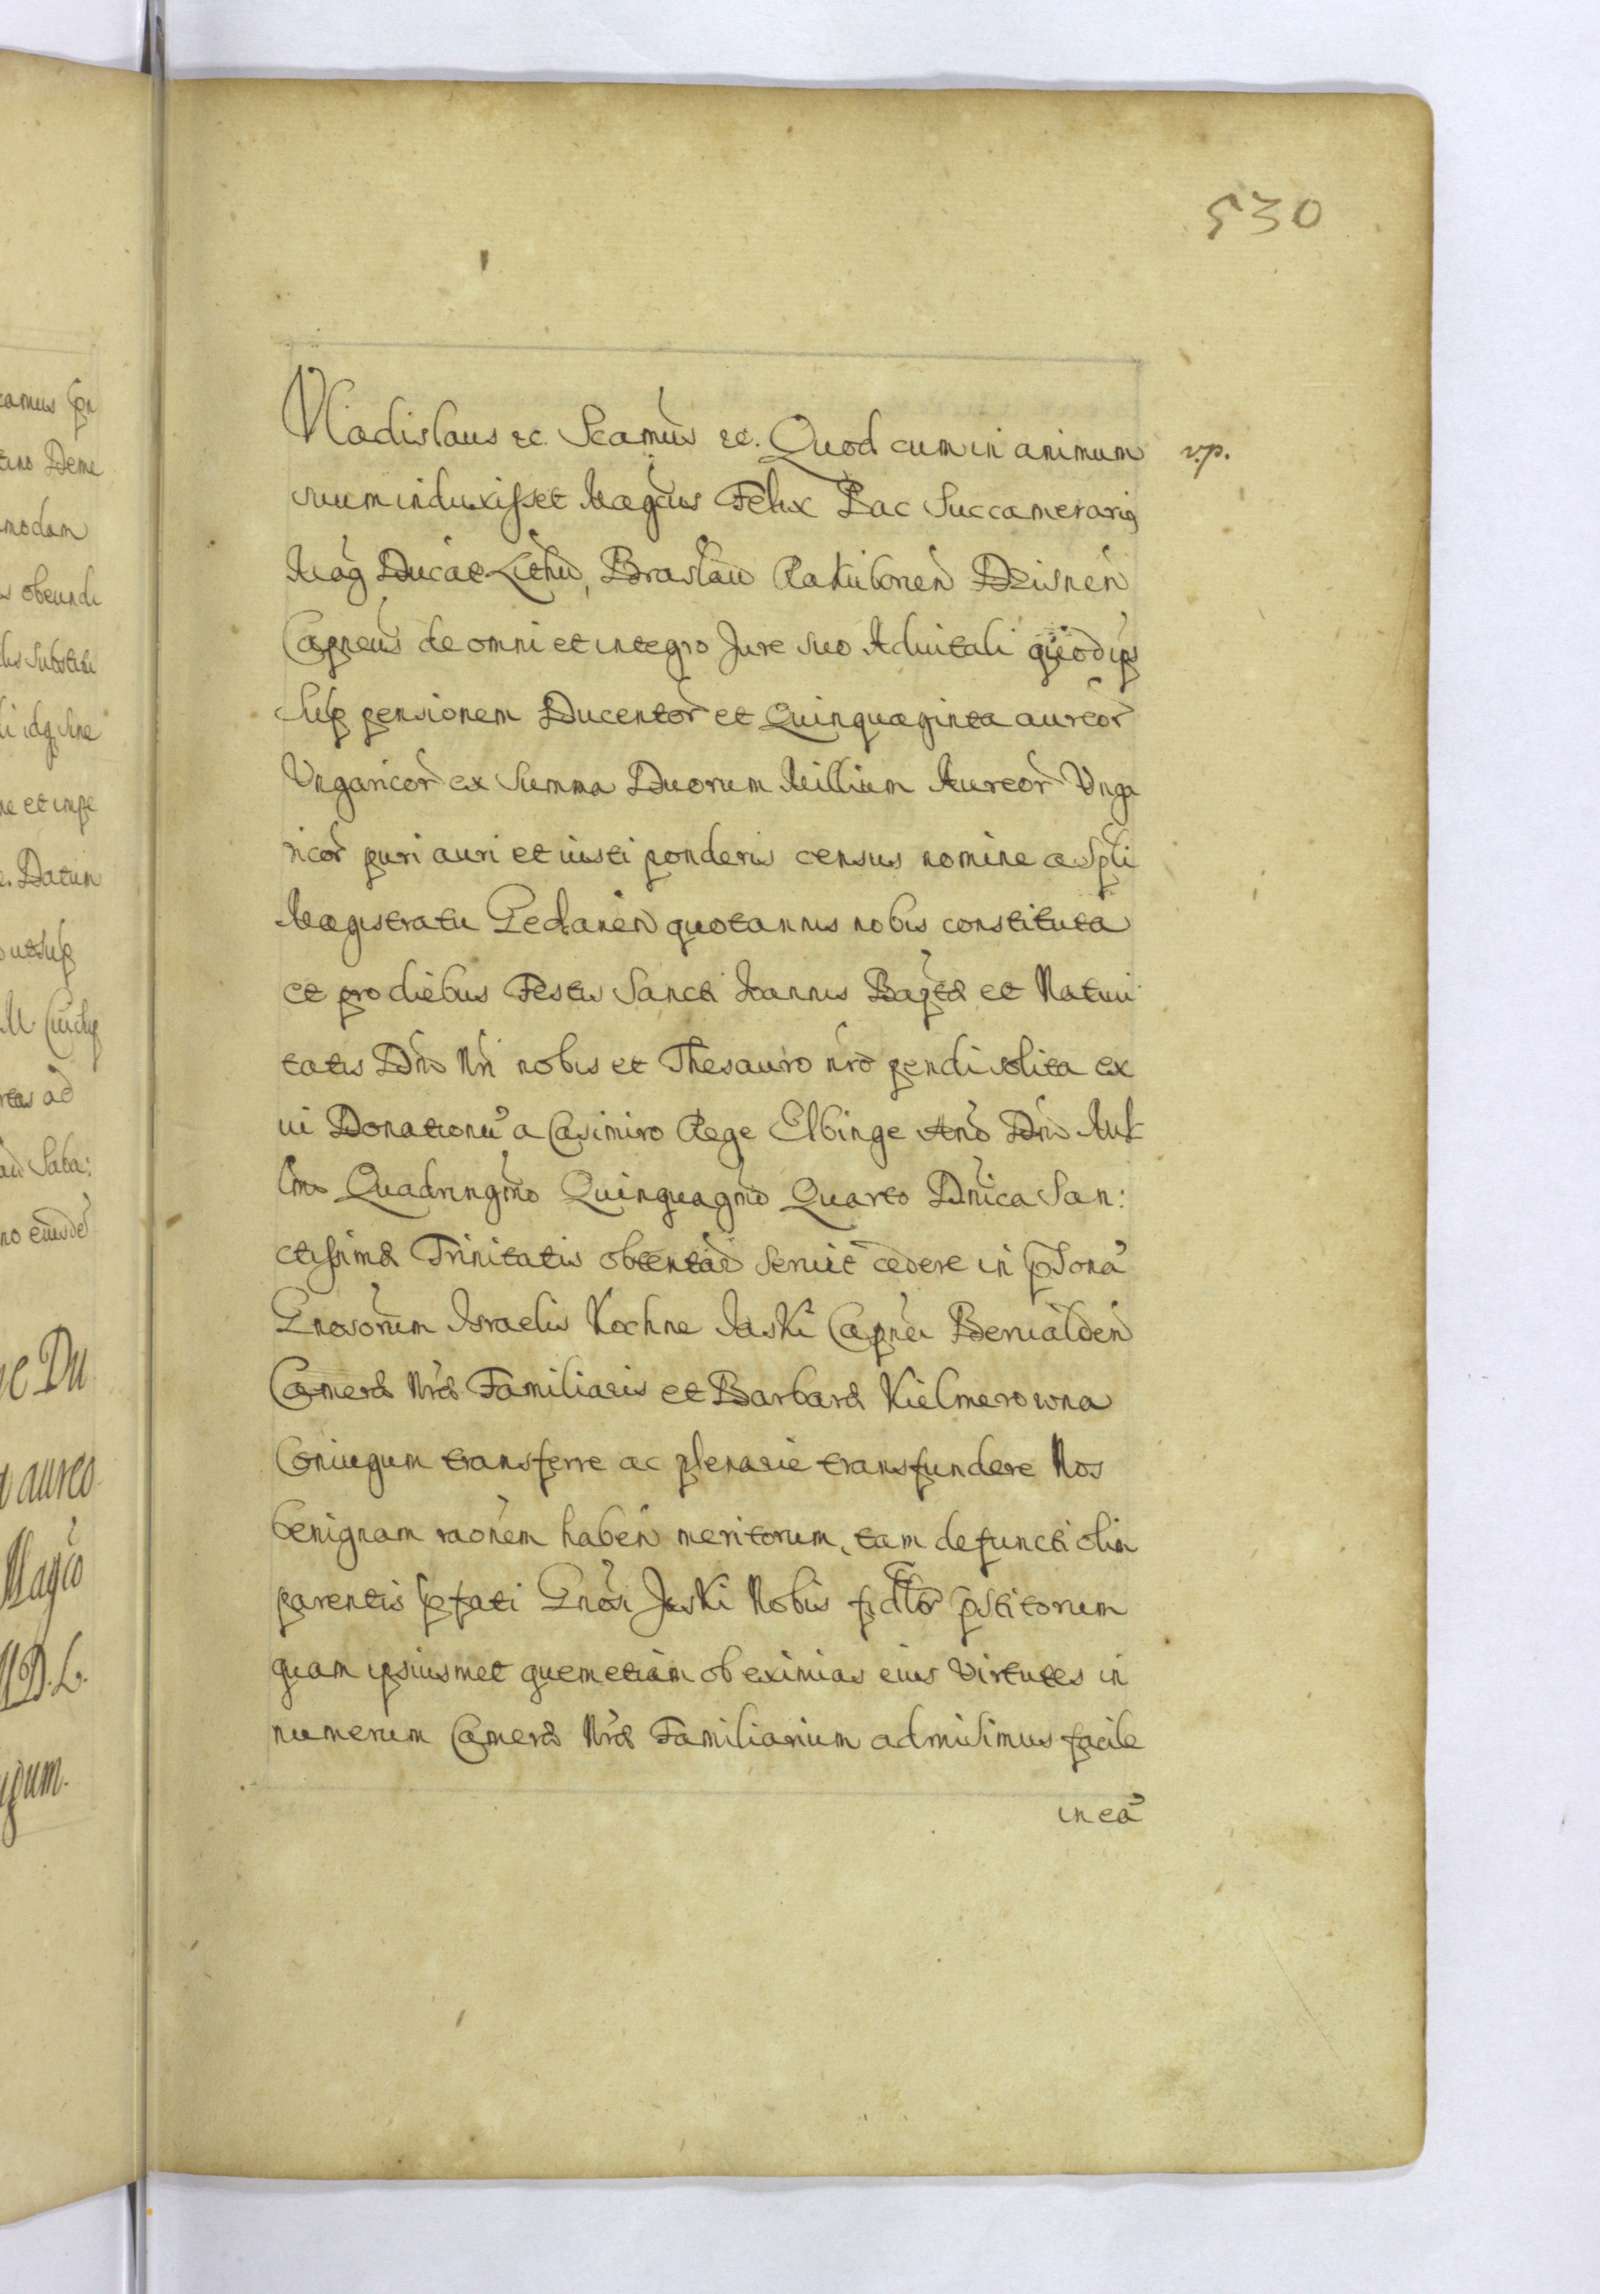 530
Vladislaus ec Scamus ec. Quod cum in animum v.p.
suum induxisset Magcus Felix Pac Succamerarius
Mag Ducat Lithu, Braslau Rakibonen Dzisnen
Capneus de omni et integro Jure suo Aduitali quod ips
sup pensionem Ducentor et Quinquaginta aureor
Vngaricor ex summa Duorum Millium Aureor Vnga
ricor puri auri et iusti ponderis census nomine a Spli
Magistratu Gedanen quotannis nobis constituta
et pro diebus Festis Sancti Joannis Baptæ et Natiui
tatis Dni Nri nobis et Thesauro nro pendi solita ex
ui Donationu a Casimiro Rege Elbingæ Ano Dni Mil
lmo Quadringmo Quinquagmo Quarto Dnica San:
ctissimæ Trinitatis obtenta seruit cedere in psona
Gnosorum Israelis Kochne Jaski Capnei Berualden
Cameræ Nræ Familiaris et Barbaræ Kielmerowna
Coniugum transferre ac plenarie transfundere Nos
benignam raonem haben meritorum, tam defuncti olim
parentis pfati Gnosi Jaski Nobis fidlr pstitorum
quam ipsiusmet quem etiam ob eximias eius Virtutes in
numerum Cameræ Nræ Familiarium admisimus facile
in ea